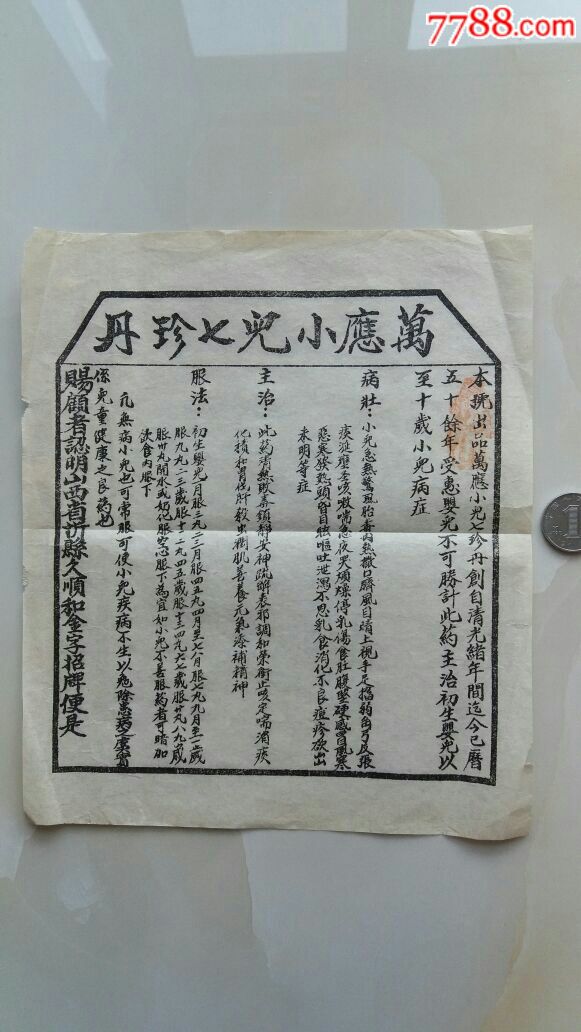 7788.com
萬應小兒七珍丹
本號出品萬應小兒七珍丹創自清光緒年間迄今已曆
五十餘年受惠嬰兒不可勝計此藥主治初生嬰兒以
至十歲小兒病症
病壯：小兒急熱驚風胎毒内熱撮口臍風目睛上視手足搐
痰涎壅盛咳嗽喘息夜哭煩燥停乳傷食肚腹堅硬感冒風寒
惡寒發熱頭目眩嘔吐泄瀉不思乳食消化不良痘疹欲出
未明等症
主治：此藥清熱鎮靜安神疏解表邪調和榮衛止咳定喘消痰
化積和胃伐肝殺虫潤肌善養元氣療補精神
服法：初生嬰兒月服九二三月服四五九四月至七月服七九九月至一歲
服九九二三歲服十二九四五歲服十三四九六七歲服廿九八九歲
服卅丸開水或奶化服空心服下為宜如小兒不善服藥者可暗加
飲食内服下
凡無病小兒也可常服可使小兒疾病不生以免除患
係兒童健康之良藥也
賜顧者認明山西省忻縣久順和金字招牌便是